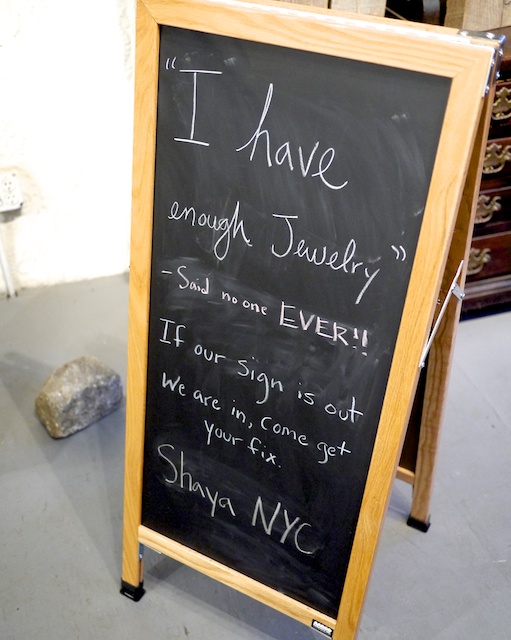 "I have
enough Jewelry"
- Said no one EVER!!
If our sign is out
We are in, Come get
your fix.
Shaya NYC